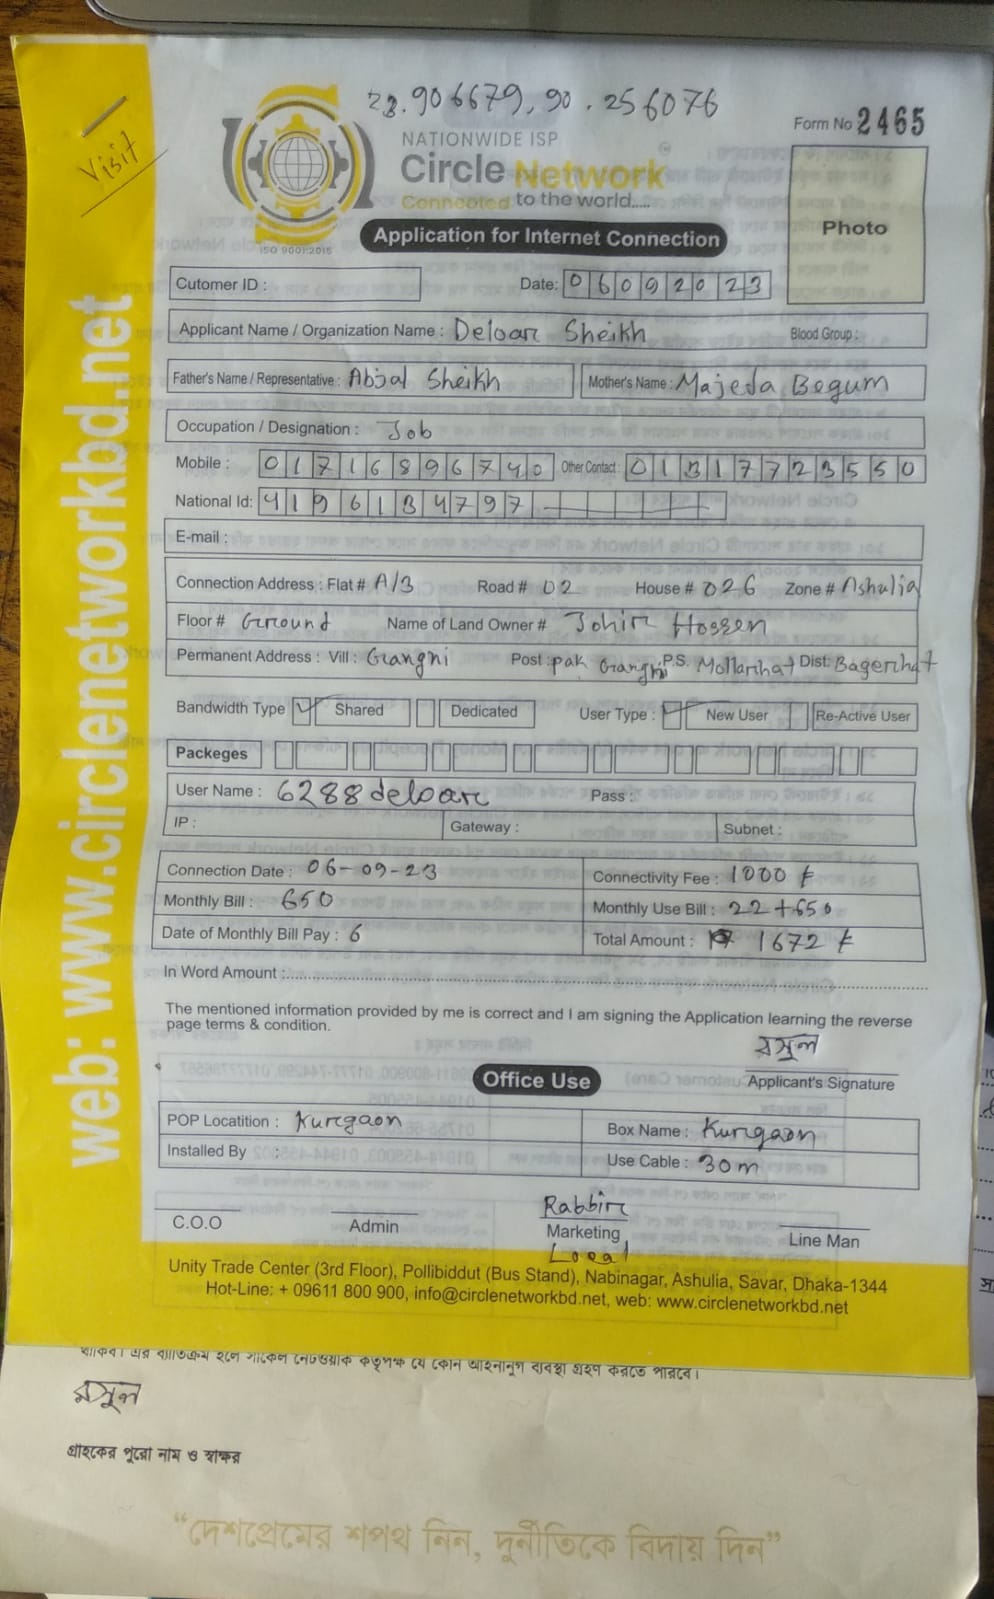 23.906679, 90.256076
Visit
NATIONWIDE ISP
Form No 2465
Circle Network
Connected to the world.....
ISO 9001:2015
Application for Internet Connection
Photo
Cutomer ID :
Date: 06092023
Applicant Name / Organization Name : Deloar Sheikh
Blood Group :
Father's Name / Representative : Abjal Sheikh
Mother's Name : Majeda Begum
Occupation / Designation : Job
Mobile : 01716896740 Other Contact : 01317723550
National Id: 4196134797
E-mail :
Connection Address : Flat # A/3 Road # 02 House # 026 Zone # Ashulia
Floor # Ground Name of Land Owner # Johir Hossen
Permanent Address : Vill : Gangni Post : pak Gangni P.S. Mollarhat Dist: Bagerhat
Bandwidth Type ✓ Shared Dedicated User Type : ✓ New User Re-Active User
Packeges
User Name : 6288deloar Pass :
IP : Gateway : Subnet :
Connection Date : 06-09-23 Connectivity Fee : 1000 ৳
Monthly Bill : 650 Monthly Use Bill : 22+650
Date of Monthly Bill Pay : 6 Total Amount : 1672 ৳
In Word Amount :
The mentioned information provided by me is correct and I am signing the Application learning the reverse
page terms & condition.
রসুল
Applicant's Signature
Office Use
POP Locatition : Kurgaon Box Name : Kurgaon
Installed By : Use Cable : 30m
Rabbir
C.O.O Admin Marketing Line Man
Local
Unity Trade Center (3rd Floor), Pollibiddut (Bus Stand), Nabinagar, Ashulia, Savar, Dhaka-1344
Hot-Line: + 09611 800 900, info@circlenetworkbd.net, web: www.circlenetworkbd.net
web: www.circlenetworkbd.net
থাকিব। এর ব্যতিক্রম হলে সার্কেল নেটওয়ার্ক কতৃপক্ষ যে কোন আইনানুগ ব্যবস্থা গ্রহণ করতে পারবে।
রসুল
গ্রাহকের পুরো নাম ও স্বাক্ষর
“দেশপ্রেমের শপথ নিন, দুর্নীতিকে বিদায় দিন”